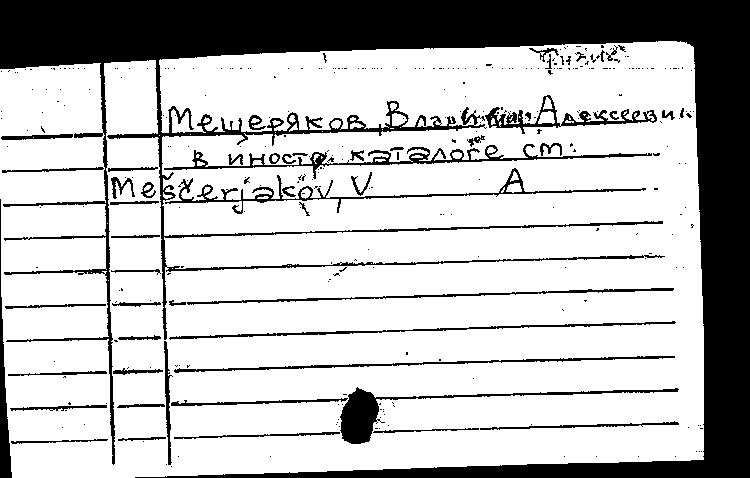 Мещеряков, Владимир Алексеевич
в иностр. каталоге см.
Meščerjakov, V A